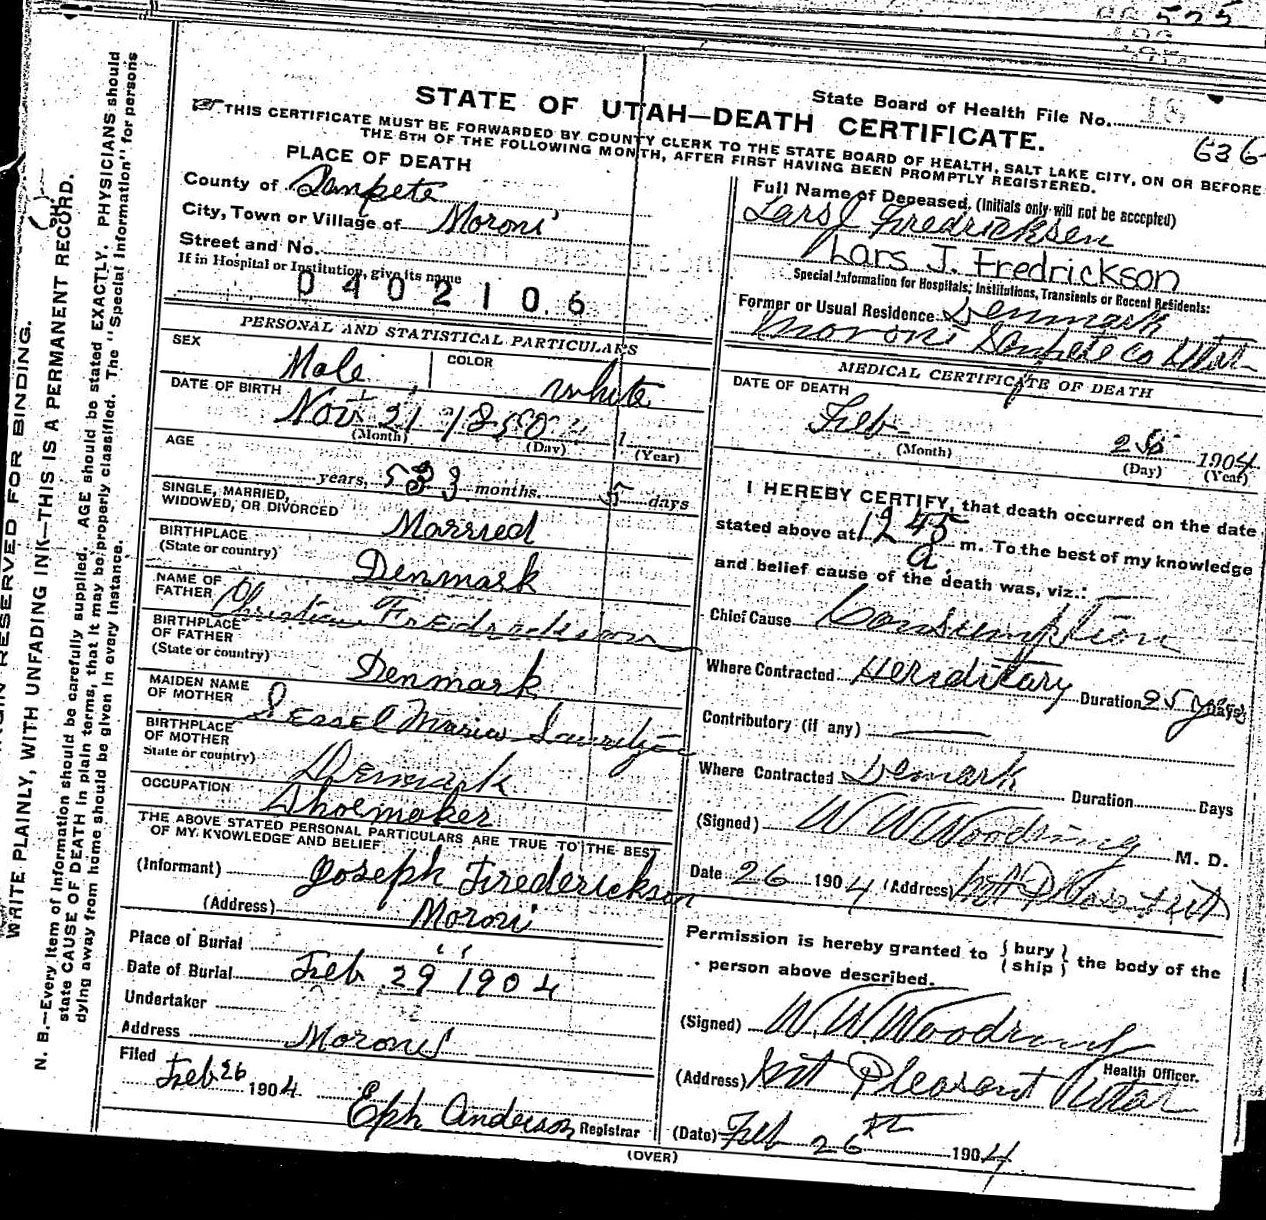 525
State Board of Health File No. 18
636
STATE OF UTAH—DEATH CERTIFICATE.
THIS CERTIFICATE MUST BE FORWARDED BY COUNTY CLERK TO THE STATE BOARD OF HEALTH, SALT LAKE CITY, ON OR BEFORE
THE 5TH OF THE FOLLOWING MONTH, AFTER FIRST HAVING BEEN PROMPTLY REGISTERED.
PLACE OF DEATH
County of Sanpete
City, Town or Village of Moroni
Street and No.
If in Hospital or Institution, give its name
0402106
PERSONAL AND STATISTICAL PARTICULARS
SEX Male COLOR white
DATE OF BIRTH Nov 21 1850
(Month) (Day) (Year)
AGE
years, 53 3 months. 5 days
SINGLE, MARRIED,
WIDOWED, OR DIVORCED Married
BIRTHPLACE
(State or country) Denmark
NAME OF
FATHER Christian Fredrickson
BIRTHPLACE
OF FATHER
(State or country) Denmark
MAIDEN NAME
OF MOTHER Sessel Maria
BIRTHPLACE
OF MOTHER
State or country) Denmark
OCCUPATION Shoemaker
THE ABOVE STATED PERSONAL PARTICULARS ARE TRUE TO THE BEST
OF MY KNOWLEDGE AND BELIEF
(Informant) Joseph Frederickson
(Address) Moroni
Place of Burial " 
Date of Burial Feb 29 1904
Undertaker
Address Moroni
Filed
Feb 26 1904
Eph Anderson Registrar
Full Name of Deceased, (Initials only will not be accepted)
Lars J Fredricksen
Lars J. Fredrickson
Special Information for Hospitals; Institutions, Transients or Recent Residents:
Former or Usual Residence Denmark
Moroni Sanpete Co Utah
MEDICAL CERTIFICATE OF DEATH
DATE OF DEATH
Feb 26 1904
(Month) (Day) (Year)
I HEREBY CERTIFY, that death occurred on the date
stated above at 12 45 a. m. To the best of my knowledge
and belief cause of the death was, viz.:
Chief Cause Consumption
Where Contracted Hereditary Duration 25 yrs Days
Contributory (if any)
Where Contracted Demark Duration Days
(Signed) W W Woodring M. D.
Date 26 1904 (Address) Mt Pleasant
Permission is hereby granted to { bury } the body of the
{ ship }
person above described.
(Signed) W. W. Woodring
Health Officer.
(Address) Mt Pleasant Utah
(Date) Feb 26th 1904
(OVER)
RESERVED FOR BINDING.
WRITE PLAINLY, WITH UNFADING INK—THIS IS A PERMANENT RECORD.
N. B.—Every item of information should be carefully supplied. AGE should be stated EXACTLY. PHYSICIANS should
state CAUSE OF DEATH in plain terms, that it may be properly classified. The "Special Information" for persons
dying away from home should be given in every instance.